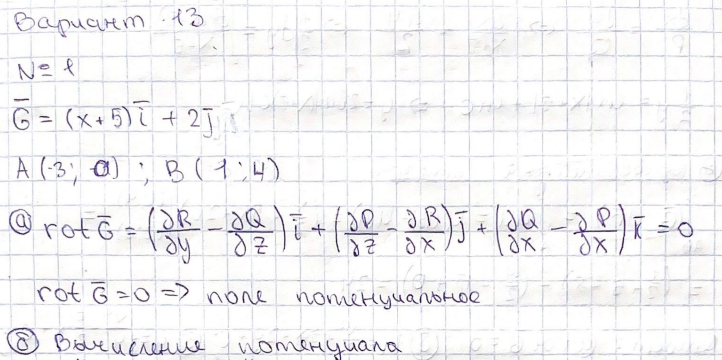 Вариант 13
№ 1
G̅ = (x+5)i̅ + 2j̅
A (-3; 0) ; B ( 1 ; 4)
а) rot G̅ = (∂R/∂y − ∂Q/∂z) i̅ + (∂P/∂z − ∂R/∂x) j̅ + (∂Q/∂x − ∂P/∂x) k̅ = 0
rot G̅ = 0 => поле потенциальное
б) Вычисление потенциала